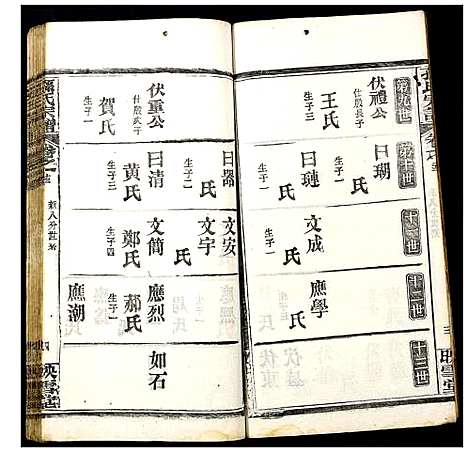 第九世
第十世
十一世
十二世
十三世
伏禮公
仕殷長子
王氏
生子三
曰瑚
曰璉
氏
生子一
文成
氏
生子一
應學
映雪堂
曰器
氏
生子二
文安
文宇
氏
伏重公
仕殷次子
賀氏
生子一
曰清
黄氏
生子三
文簡
鄭氏
生子四
應烈
郝氏
生子一
如石
應潮
孫氏宗譜
映雪堂